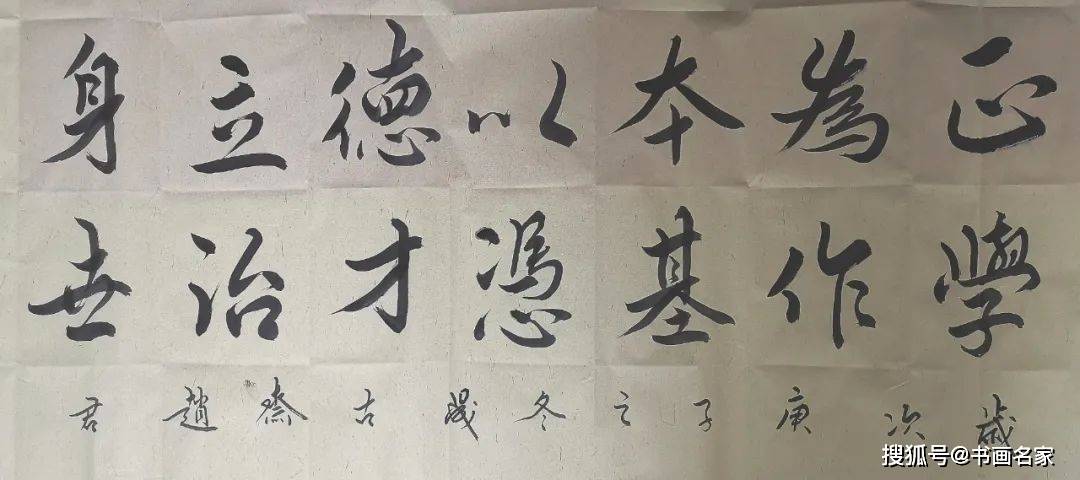 正為本以德立身
學作基憑才治世
歲次庚子之冬古齋趙君
搜狐号@书画名家